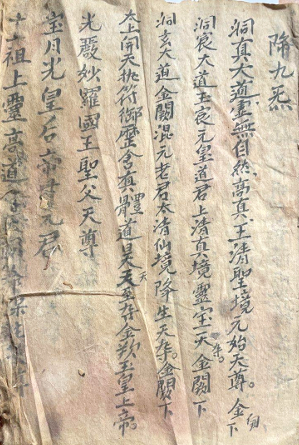 降九炁
洞真大道虛無自然高真玉清聖境元始天尊。金闕下
洞宸大道玉宸元皇道君上清真境靈宝天尊。金闕下
洞玄大道金闕混元老君太清仙境降生天尊。金闕下
太上開天执符御歷含真體道昊天至尊金闕玉皇上帝。
光嚴妙羅國王聖父天尊
宝月光皇后聖母元君